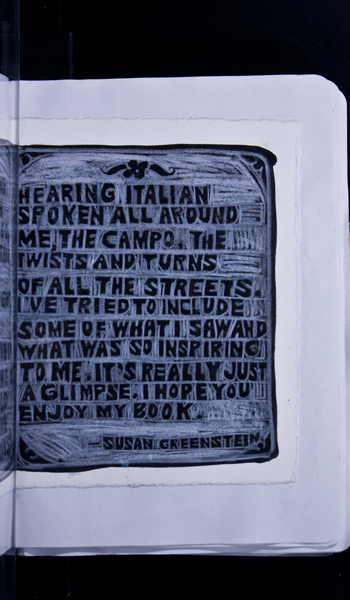 HEARING ITALIAN
SPOKEN ALL AROUND
ME, THE CAMPO. THE
TWISTS AND TURNS
OF ALL THE STREETS.
I'VE TRIED TO INCLUDE
SOME OF WHAT I SAW AND
WHAT WAS SO INSPIRING
TO ME. IT'S REALLY JUST
A GLIMPSE. I HOPE YOU
ENJOY MY BOOK.
—SUSAN GREENSTEIN